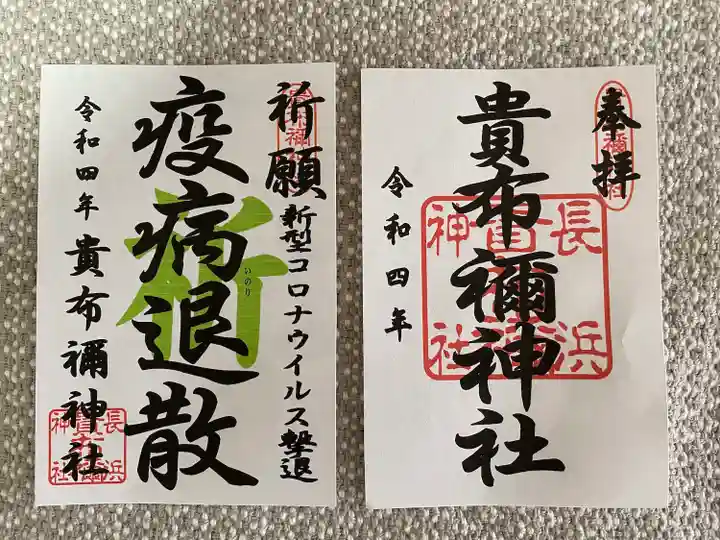 祈願
新型コロナウイルス撃退
疫病退散
祈
いのり
令和四年
貴布禰神社
奉拝
貴布禰神社
令和四年
長
浜
神
社
長
浜
神
社